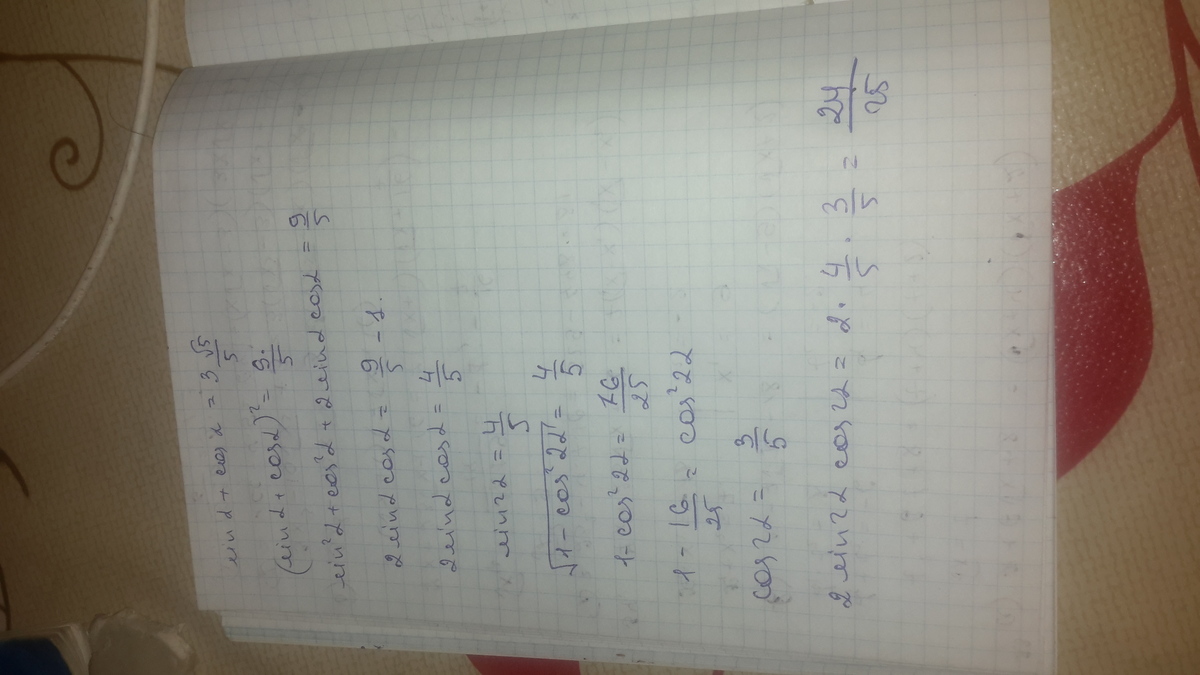 sin α + cos α = 3 √5/5
(sin α + cos α)² = 9/5
sin² α + cos² α + 2 sin α cos α = 9/5
2 sin α cos α = 9/5 - 1.
2 sin α cos α = 4/5
sin 2α = 4/5
√(1 - cos² 2α) = 4/5
1 - cos² 2α = 16/25
1 - 16/25 = cos² 2α
cos 2α = 3/5
2 sin 2α cos 2α = 2 · 4/5 · 3/5 = 24/25